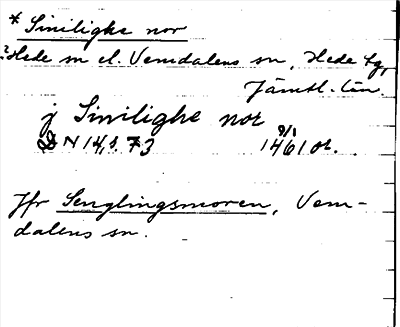 * Sinilighe nor
? Hede sn el. Vemdalens sn, Hede tg,
Jämtl. län
j Sinilighe nor
DN 14, s. 73 9/1 1461 or.
Jfr Senglingsmoren, Vem-
dalens sn.